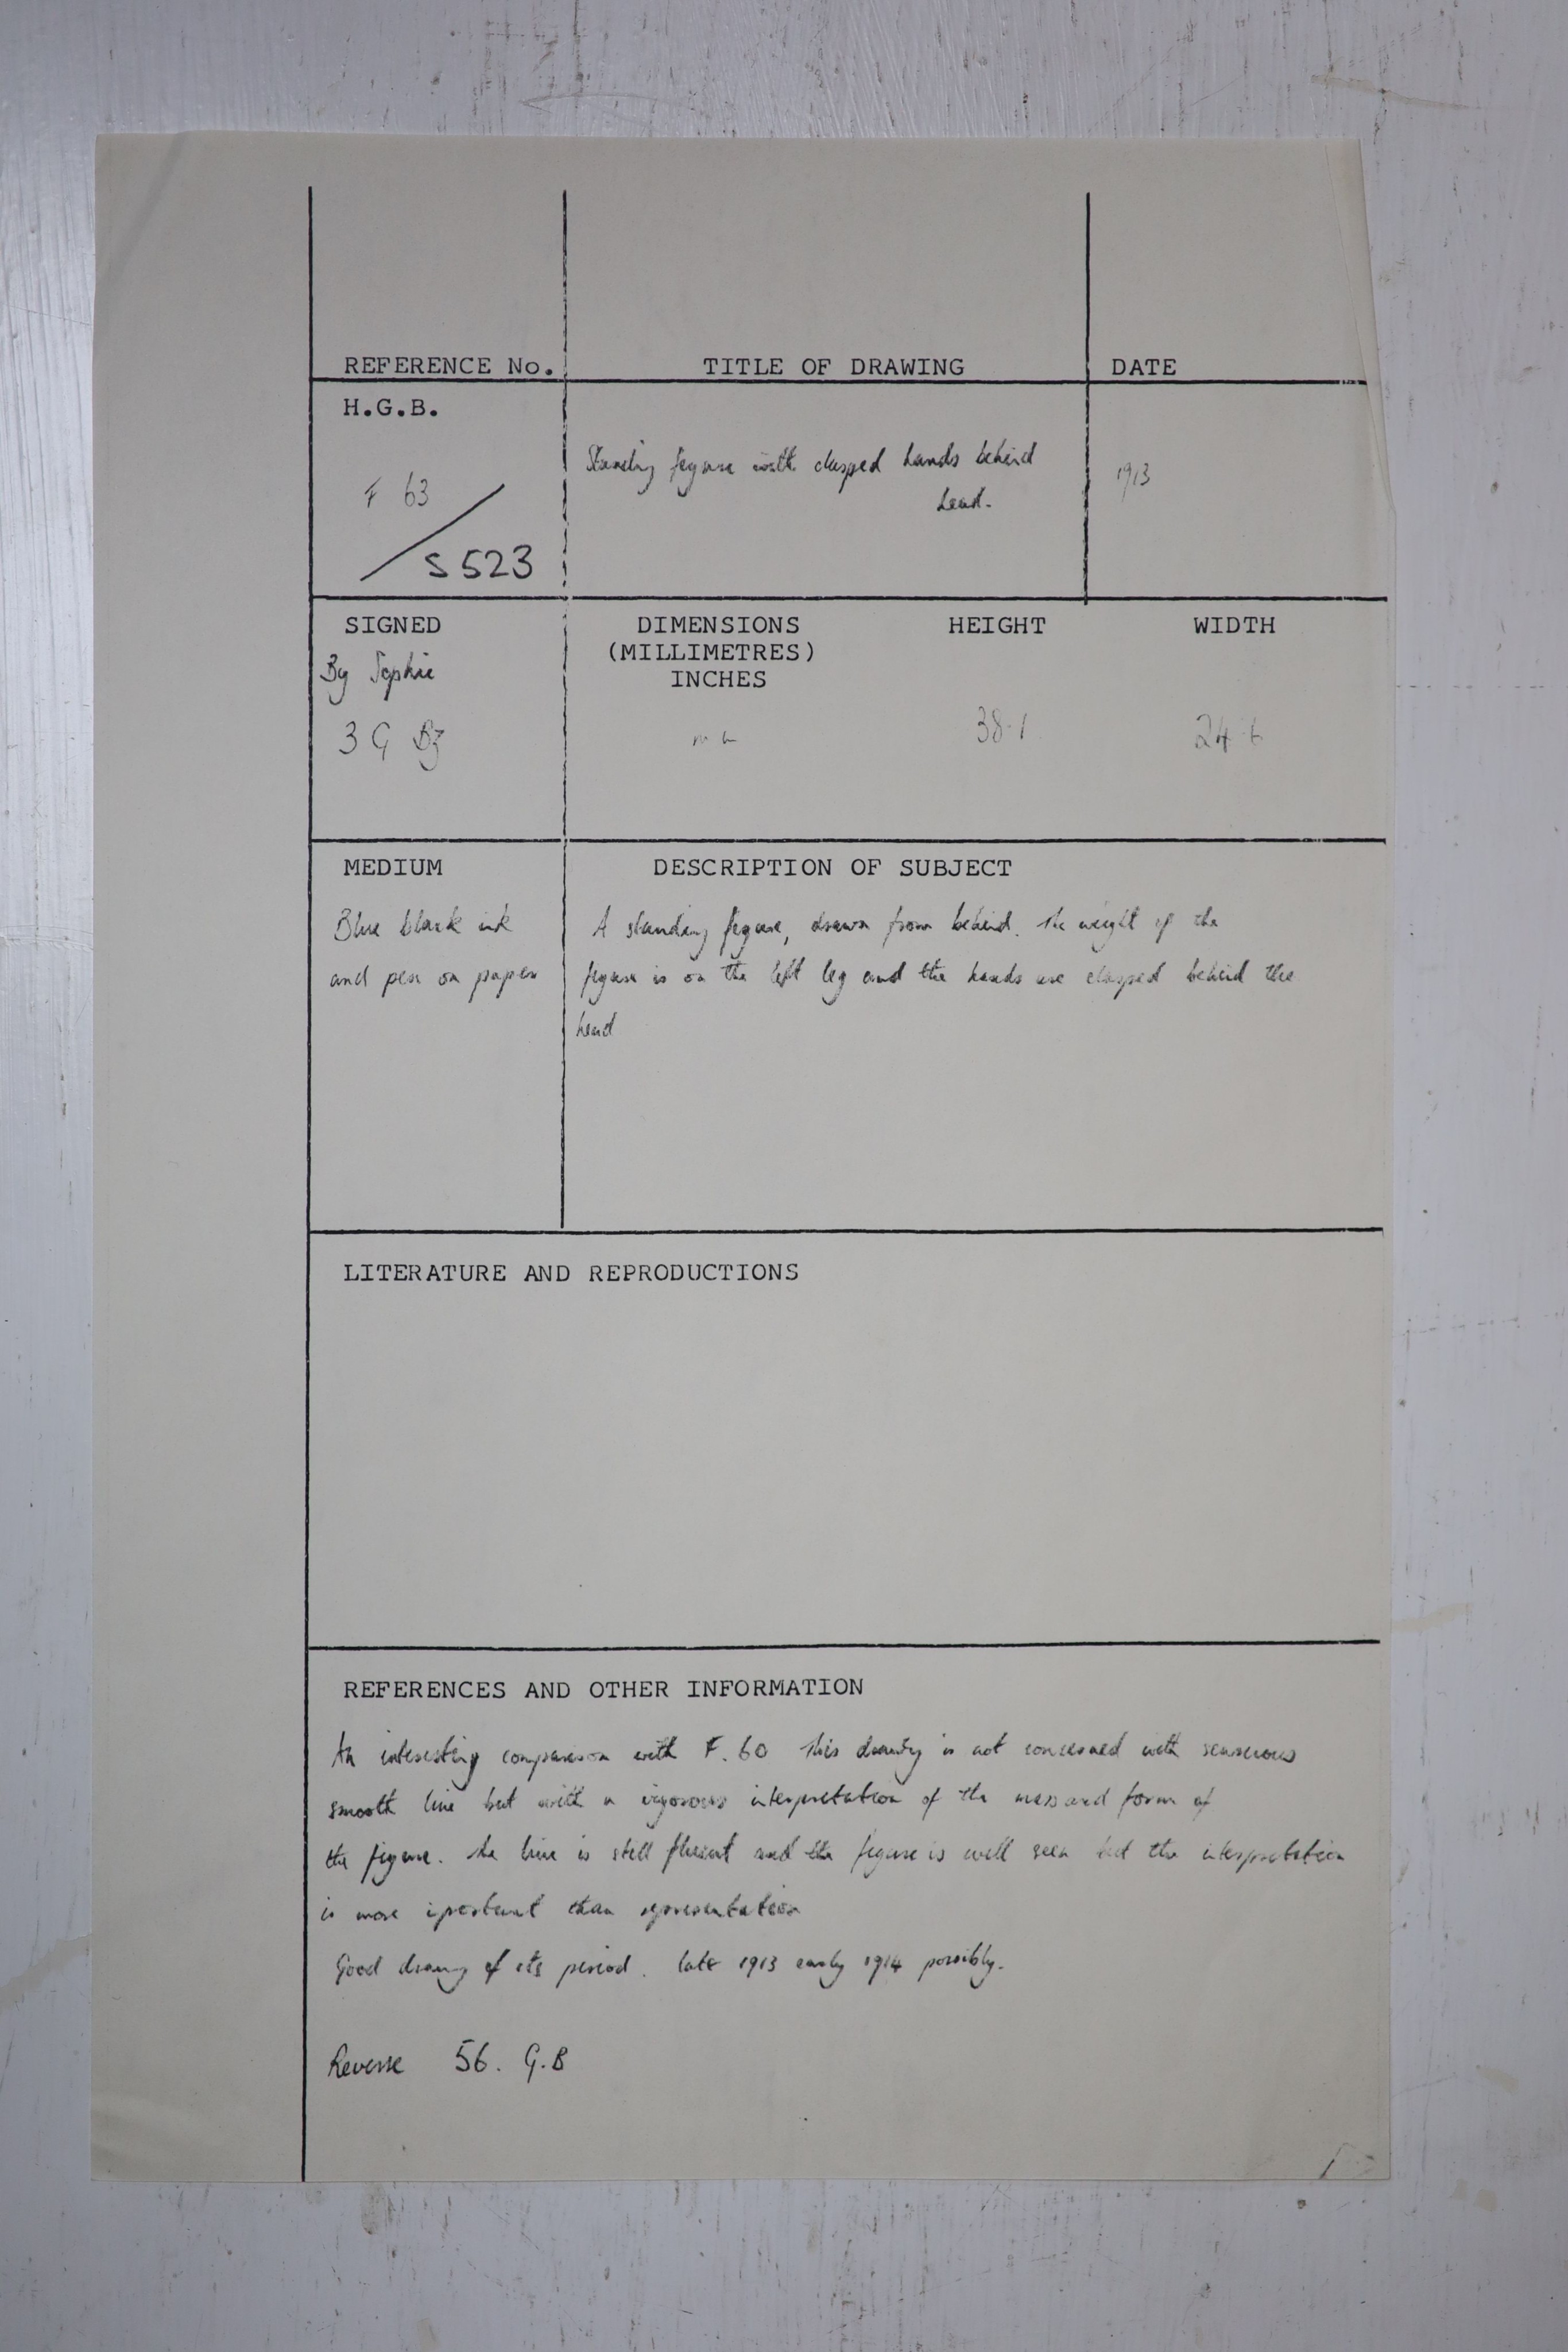 REFERENCE No. TITLE OF DRAWING DATE
H.G.B.
F 63
/S 523
Standing figure with clasped hands behind
head.
1913
SIGNED
By Sophie
3 G Bz
DIMENSIONS HEIGHT WIDTH
(MILLIMETRES)
INCHES
38.1 24.
MEDIUM
Blue black ink
and pen on paper
DESCRIPTION OF SUBJECT
A standing figure, drawn from behind. The weight of the
figure is on the left leg and the hands are clasped behind the
head
LITERATURE AND REPRODUCTIONS
REFERENCES AND OTHER INFORMATION
An interesting comparison with F. 60 This drawing is not concerned with sensuous
smooth line but with a vigorous interpretation of the mass and form of
the figure. The line is still fluent and the figure is well seen but the interpretation
is more iportant than representation
Good drawing of its period. late 1913 early 1914 possibly.
Reverse 56. G.B